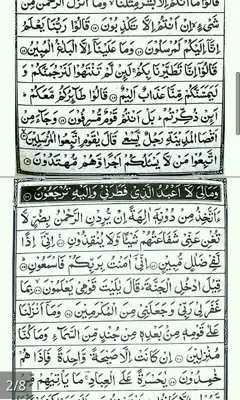 قَالُوْا مَاۤ اَنْتُمْ اِلَّا بَشَرٌ مِّثْلُنَا ۙ وَمَاۤ اَنْزَلَ الرَّحْمٰنُ مِنْ
شَىْءٍ ۙ اِنْ اَنْتُمْ اِلَّا تَكْذِبُوْنَ ۝ قَالُوْا رَبُّنَا يَعْلَمُ
اِنَّاۤ اِلَيْكُمْ لَمُرْسَلُوْنَ ۝ وَمَا عَلَيْنَاۤ اِلَّا الْبَلٰغُ الْمُبِيْنُ ۝
قَالُوْۤا اِنَّا تَطَيَّرْنَا بِكُمْ ۚ لَئِنْ لَّمْ تَنْتَهُوْا لَنَرْجُمَنَّكُمْ وَ
لَيَمَسَّنَّكُمْ مِّنَّا عَذَابٌ اَلِيْمٌ ۝ قَالُوْا طَآئِرُكُمْ مَّعَكُمْ ؕ
اَئِنْ ذُكِّرْتُمْ ؕ بَلْ اَنْتُمْ قَوْمٌ مُّسْرِفُوْنَ ۝ وَجَآءَ مِنْ
اَقْصَا الْمَدِيْنَةِ رَجُلٌ يَّسْعٰى قَالَ يٰقَوْمِ اتَّبِعُوا الْمُرْسَلِيْنَ ۝
اتَّبِعُوْا مَنْ لَّا يَسْـَٔلُكُمْ اَجْرًا وَّهُمْ مُّهْتَدُوْنَ ۝
وَمَا لِىَ لَاۤ اَعْبُدُ الَّذِىْ فَطَرَنِىْ وَاِلَيْهِ تُرْجَعُوْنَ ۝
ءَاَتَّخِذُ مِنْ دُوْنِهٖۤ اٰلِهَةً اِنْ يُّرِدْنِ الرَّحْمٰنُ بِضُرٍّ لَّا
تُغْنِ عَنِّىْ شَفَاعَتُهُمْ شَيْـًٔا وَّلَا يُنْقِذُوْنِ ۝ اِنِّىْۤ اِذًا
لَّفِىْ ضَلٰلٍ مُّبِيْنٍ ۝ اِنِّىْۤ اٰمَنْتُ بِرَبِّكُمْ فَاسْمَعُوْنِ ۝
قِيْلَ ادْخُلِ الْجَنَّةَ ؕ قَالَ يٰلَيْتَ قَوْمِىْ يَعْلَمُوْنَ ۝ بِمَا
غَفَرَ لِىْ رَبِّىْ وَجَعَلَنِىْ مِنَ الْمُكْرَمِيْنَ ۝ وَمَاۤ اَنْزَلْنَا
عَلٰى قَوْمِهٖ مِنْۢ بَعْدِهٖ مِنْ جُنْدٍ مِّنَ السَّمَآءِ وَمَا كُنَّا
مُنْزِلِيْنَ ۝ اِنْ كَانَتْ اِلَّا صَيْحَةً وَّاحِدَةً فَاِذَا هُمْ
خٰمِدُوْنَ ۝ يٰحَسْرَةً عَلَى الْعِبَادِ ۚ مَا يَاْتِيْهِمْ
2/8